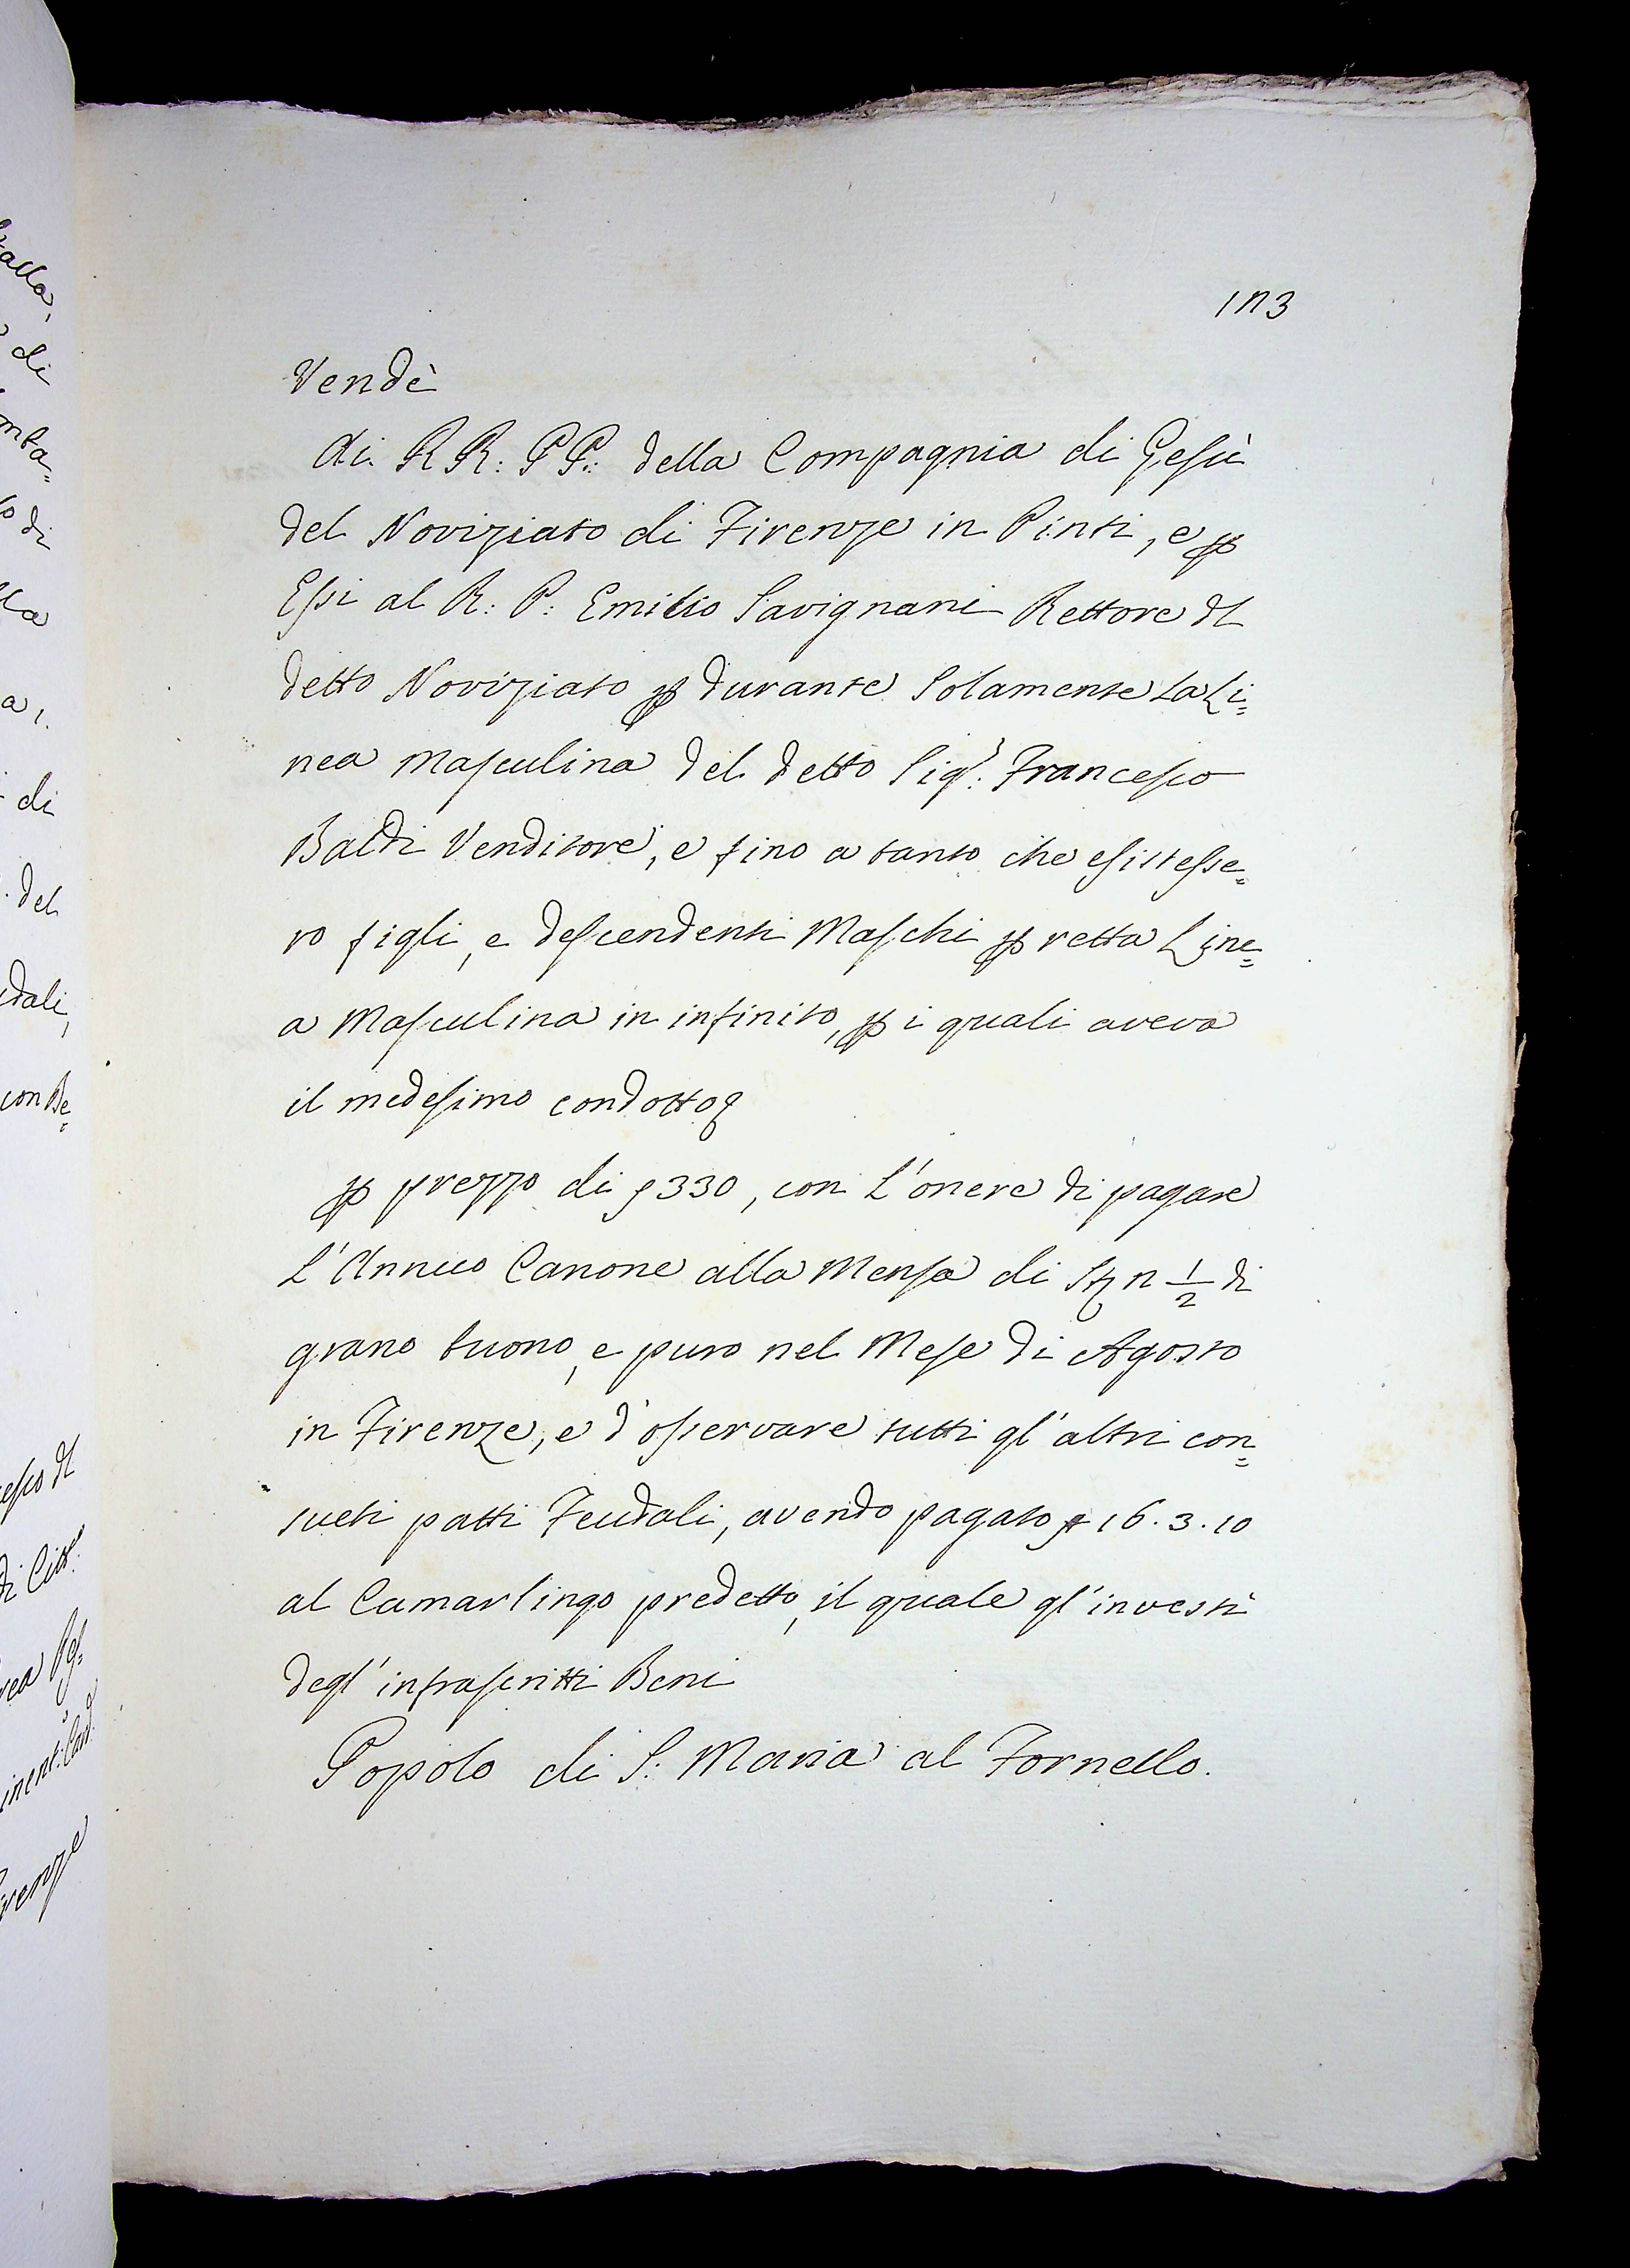 173
Vendè
Ai RR: PP: della Compagnia di Gesù
del Noviziato di Firenze in Pinti, e ꝑ
Essi al R: P: Emilio Savignani Rettore dl
detto Noviziato ꝑ durante Solamente La Li=
nea Masculina del detto Sigr. Francesco
Baldi Venditore, e fino a tanto che esistesse=
ro figli, e descendenti Maschi ꝑ retta Line=
a Masculina in infinito, ꝑ i quali aveva
il medesimo condotto
ꝑ prezzo di 330, con L'onere di pagare
L'Annuo Canone alla Mensa di 1/2 di
grano buono, e puro nel Mese di Agosto
in Firenze, e d'osservare tutti gl'altri con=
sueti patti Feudali, avendo pagato 16.3.10
al Camarlingo predetto, il quale gl'investì
degl'infrascritti Beni
Popolo di S: Maria al Fornello.
alla,
di
del
dali,
con Be=